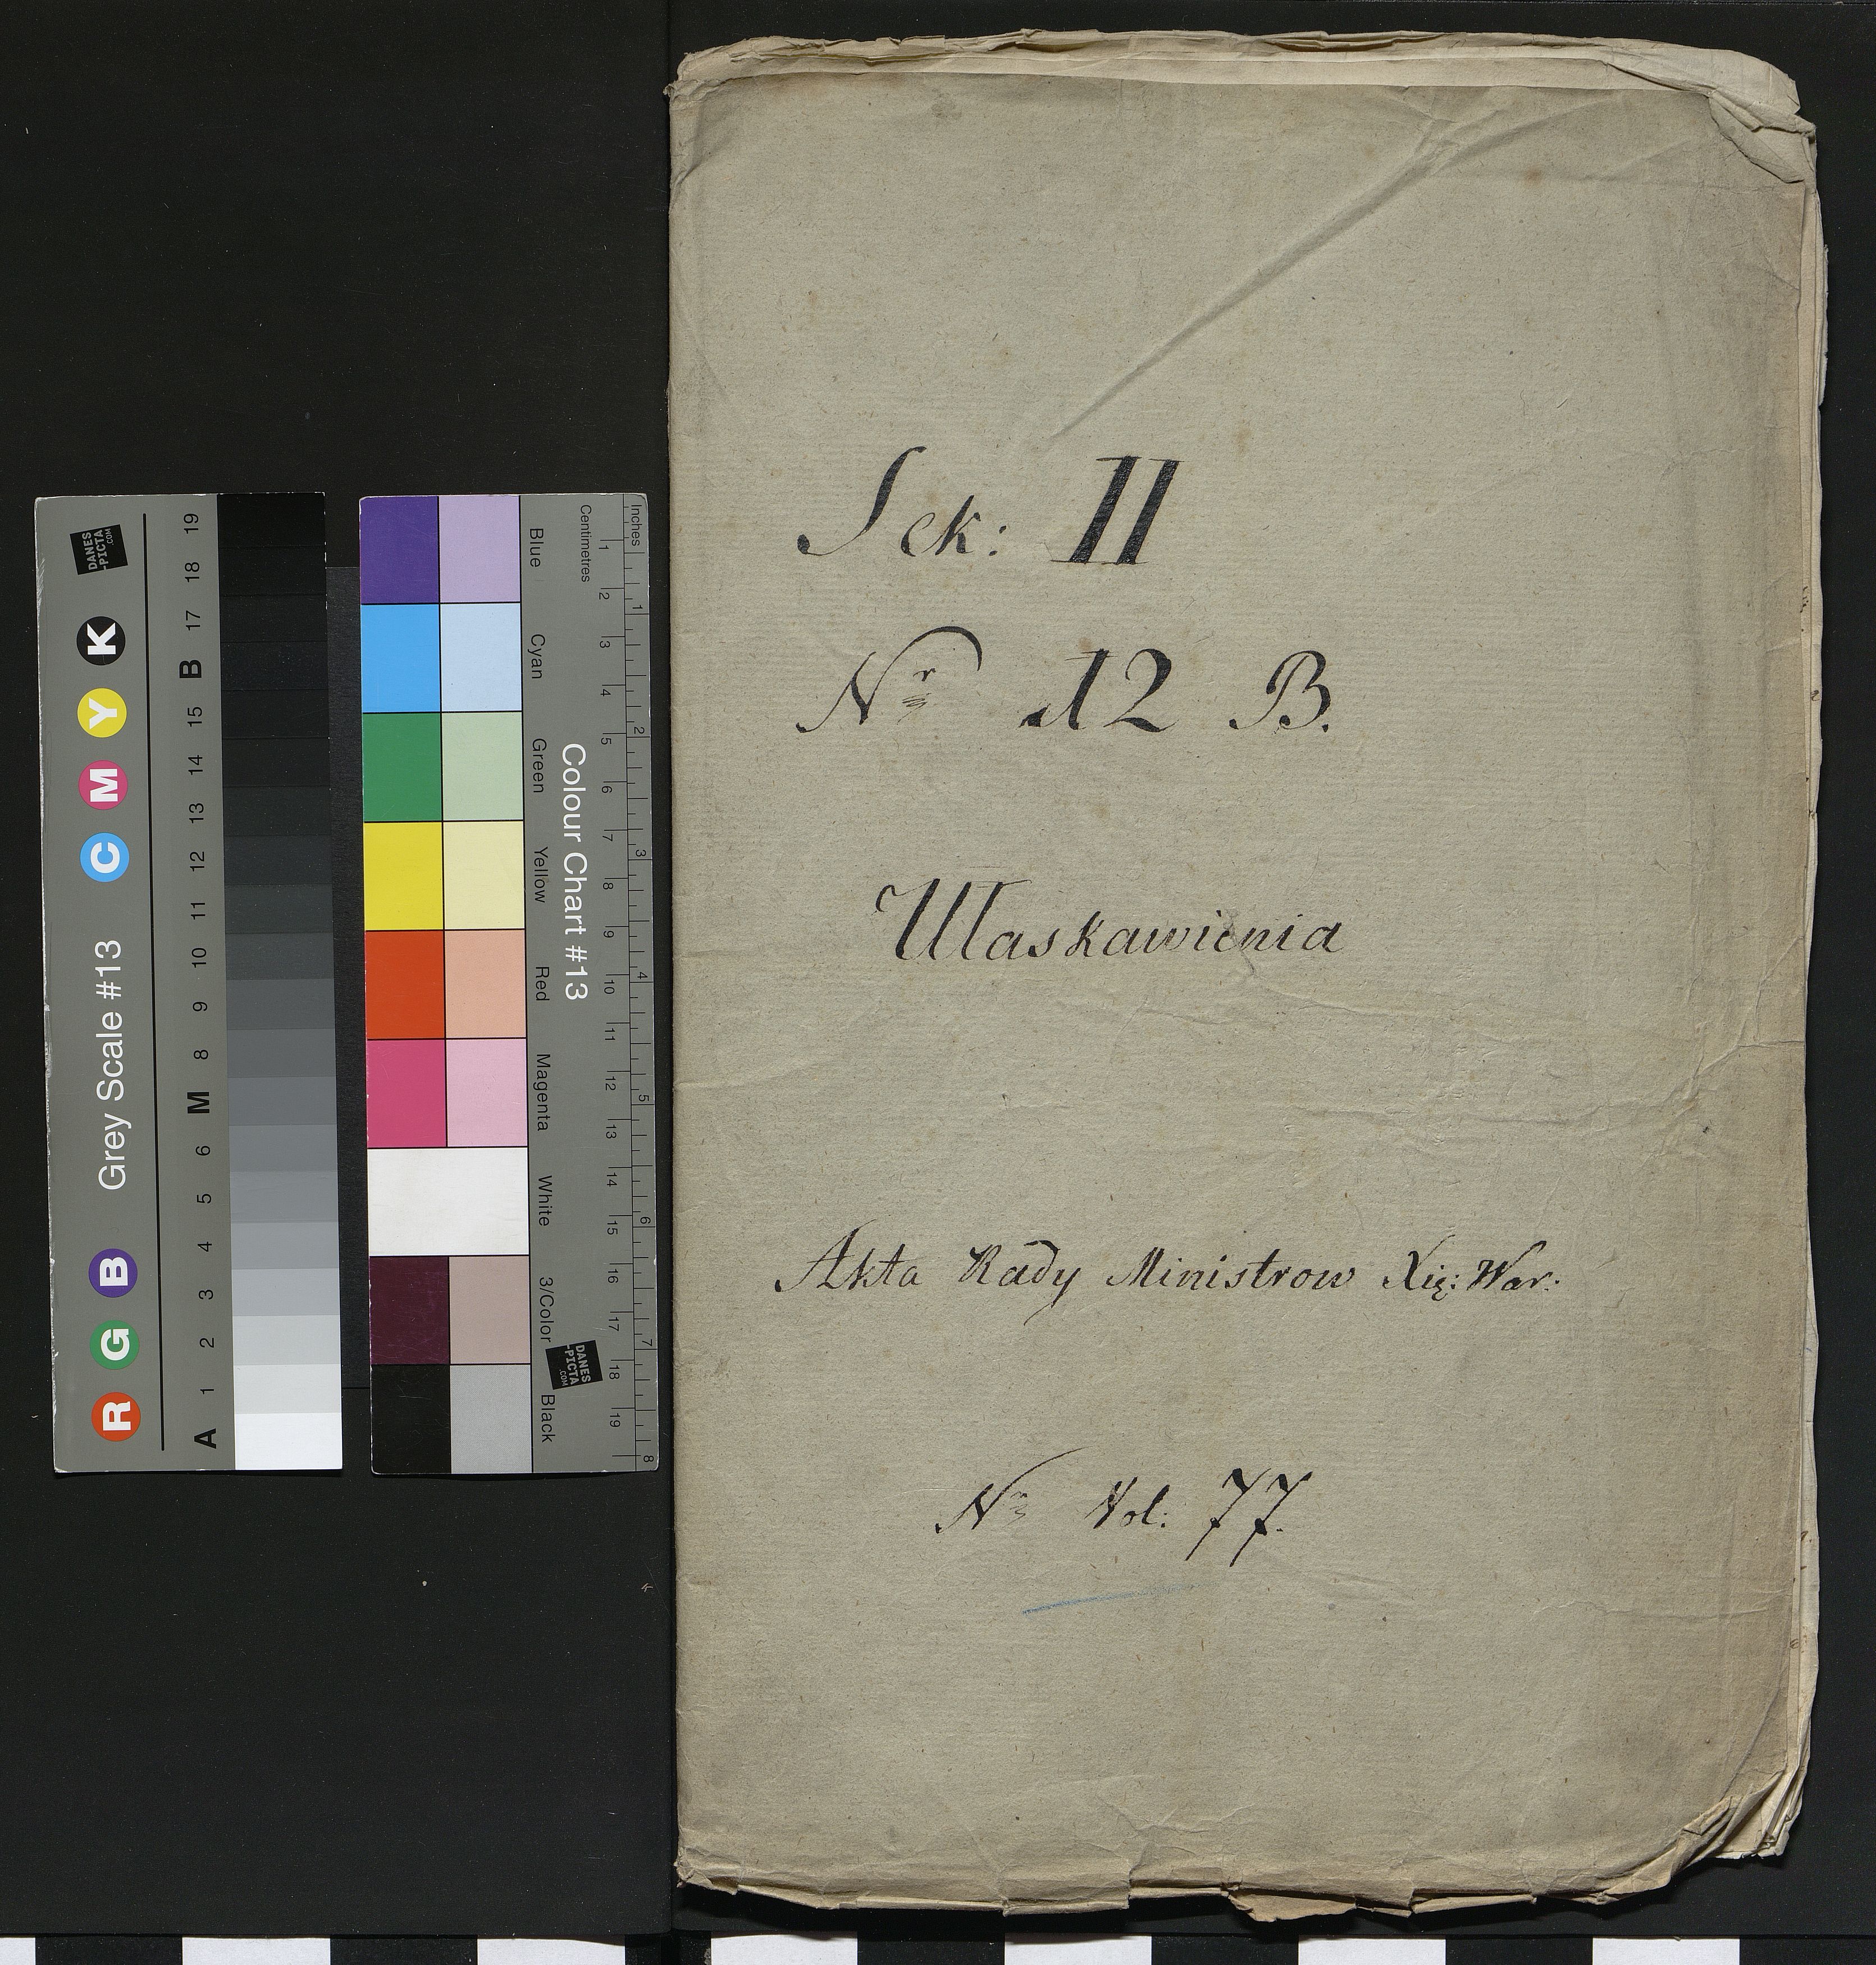 Sek: II
Nr 12 B.
Ułaskawienia
Akta Rady Ministrow Xię: War:
Nr Vol: 77.
Grey Scale #13
R G B C M Y K
A 1 2 3 4 5 6 M 8 9 10 11 12 13 14 15 B 17 18 19
DANES
-PICTA
.COM
Colour Chart #13
Blue Cyan Green Yellow Red Magenta White 3/Color Black
Centimetres 1 2 3 4 5 6 7 8 9 10 11 12 13 14 15 16 17 18 19
Inches 1 2 3 4 5 6 7 8
DANES
-PICTA
.COM